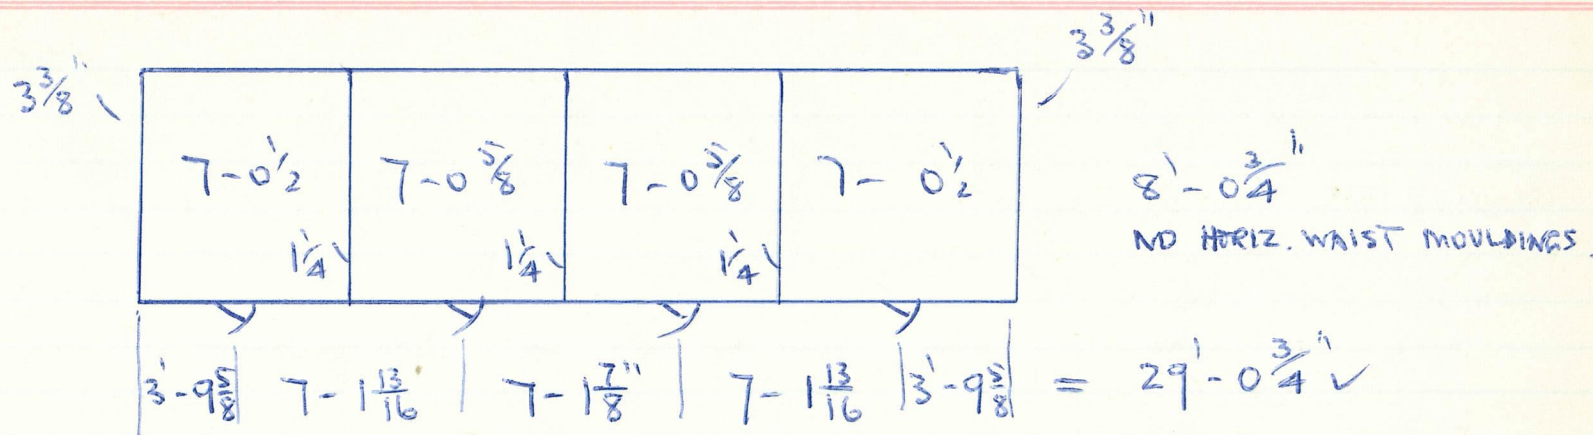 3 3/8" 3 3/8"
7-0 1/2 7-0 5/8 7-0 5/8 7-0 1/2 8'-0 3/4"
1 1/4 1 1/4 1 1/4 NO HORIZ. WAIST MOULDINGS.
3'-9 5/8 7-1 13/16 7-1 7/8" 7-1 13/16 3'-9 5/8 = 29'-0 3/4" ✓